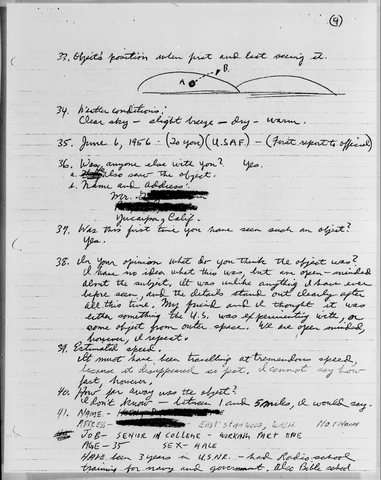 (9)
33. Object's position when first and last seeing it.
A B.
34. Weather conditions:
Clear sky - slight breeze - dry - warm.
35. June 6, 1956 - (To you) (U.S.A.F) - (First report to official)
36. Was anyone else with you? Yes.
a. also saw the object.
b. Name and Address:
Mr.
Yucaipa, Calif.
37. Was this first time you have seen such an object?
Yes.
38. In your opinion what do you think the object was?
I have no idea what this was, but am open-minded
about the subject, it was unlike anything I have ever
before seen, and the details stand out clearly after
all this time. My friend and I thought it was
either something the U.S. was experimenting with, or
some object from outer space. We are open minded,
however, I repeat.
39. Estimated speed:
It must have been travelling at tremendous speed,
because it disappeared so fast. I cannot say how
fast, however.
40. How far away was the object?
I don't know - between 1 and 5 miles, I would say.
41. NAME -
ADDRESS - EAST STANWOOD, WASH.
JOB - SENIOR IN COLLEGE - WORKING PART TIME
AGE - 35 SEX - MALE
HAVE been 3 years in U.S.N.R. - had Radio school
training for navy and government. Also Bible school